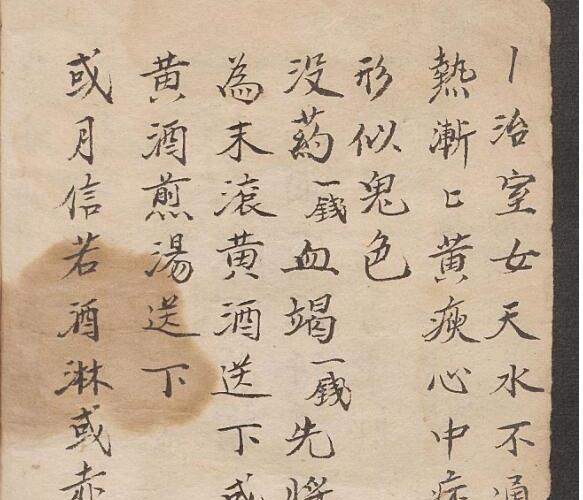 丨治室女天水不通
熱漸〻黄瘐心中疼
形似鬼色
没薬一錢血竭一錢先將
為末滾黄酒送下或
黄酒煎湯送下
或月信若酒淋或赤